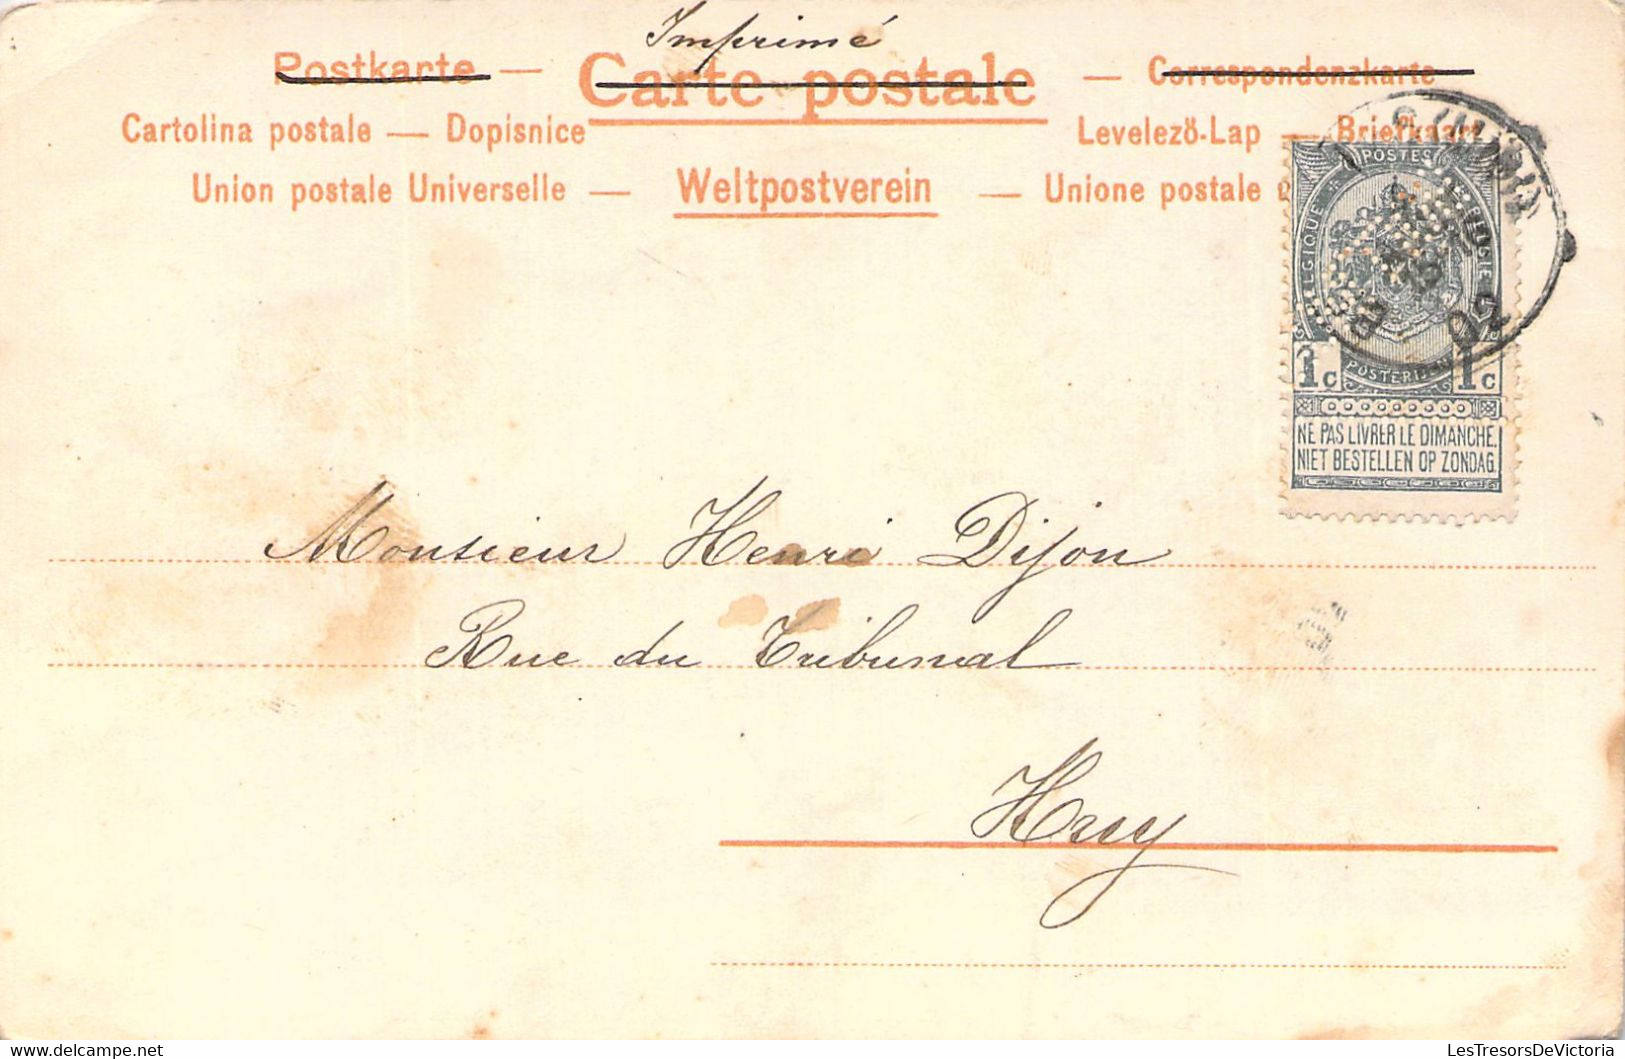 Imprimé
Postkarte — Carte postale — Correspondenzkarte
Cartolina postale — Dopisnice Levelezö-Lap — Briefkaart
Union postale Universelle — Weltpostverein — Unione postale
POSTES
BELGIQUE BELGIË
1c POSTERIJEN 1c
NE PAS LIVRER LE DIMANCHE.
NIET BESTELLEN OP ZONDAG.
02
Monsieur Henri Dijon
Rue du Tribunal
Huy
LesTresorsDeVictoria